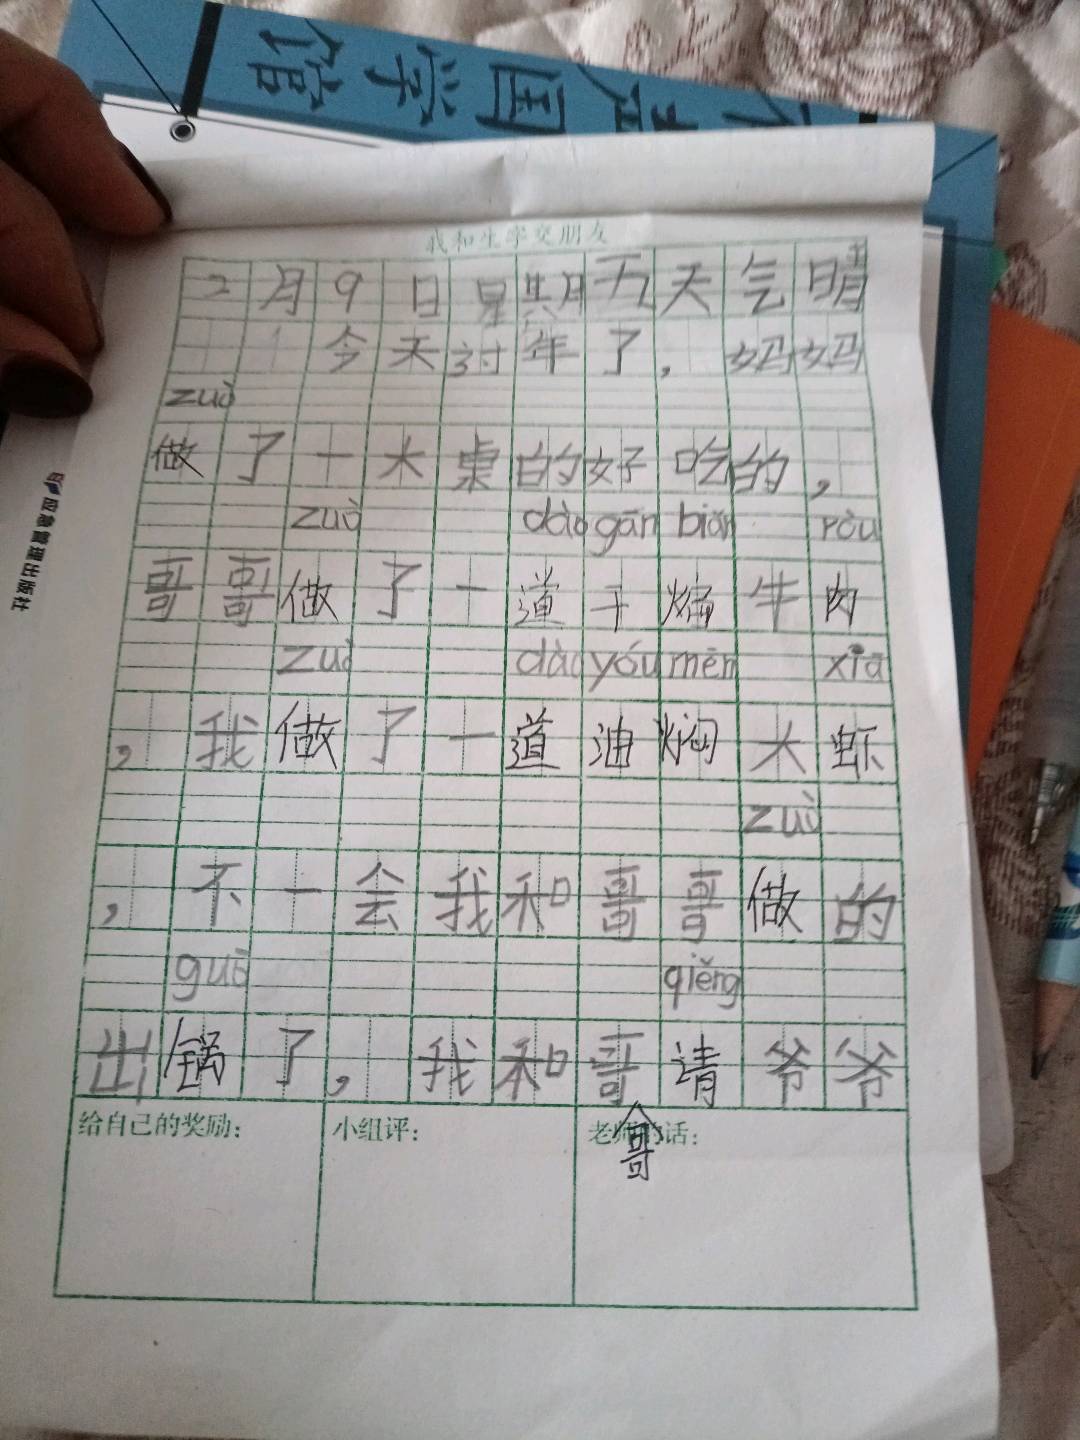 国学馆
应急管理出版社
我和生字交朋友
2月9日星期五天气晴
今天过年了，妈妈
zuò
做了一大桌的好吃的，
zuò dào gān biān ròu
哥哥做了一道干煸牛肉
zuò dào yóu mēn xiā
，我做了一道油焖大虾
zuì
，不一会我和哥哥做的
guō qiěng
出锅了，我和哥请爷爷
哥
给自己的奖励：
小组评：
老师的话：